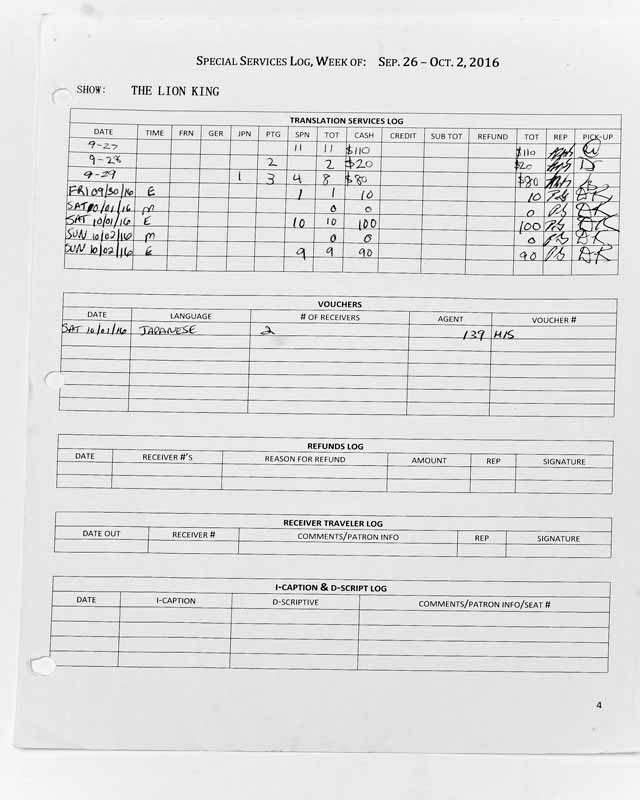 SPECIAL SERVICES LOG, WEEK OF: SEP. 26 – OCT. 2, 2016
SHOW: THE LION KING
TRANSLATION SERVICES LOG
DATE TIME FRN GER JPN PTG SPN TOT CASH CREDIT SUB TOT REFUND TOT REP PICK-UP
9-27 11 11 $110 $110
9-28 2 2 $20 $20
9-29 1 3 4 8 $80 $80
FRI 09/30/16 E 1 1 10 10 DR
SAT 10/01/16 M 0 0 0 DR
SAT 10/01/16 E 10 10 100 100 DR
SUN 10/02/16 M 0 0 0 DR
SUN 10/02/16 E 9 9 90 90 DR
VOUCHERS
DATE LANGUAGE # OF RECEIVERS AGENT VOUCHER #
SAT 10/01/16 JAPANESE 2 139 HIS
REFUNDS LOG
DATE RECEIVER #'S REASON FOR REFUND AMOUNT REP SIGNATURE
RECEIVER TRAVELER LOG
DATE OUT RECEIVER # COMMENTS/PATRON INFO REP SIGNATURE
I-CAPTION & D-SCRIPT LOG
DATE I-CAPTION D-SCRIPTIVE COMMENTS/PATRON INFO/SEAT #
4